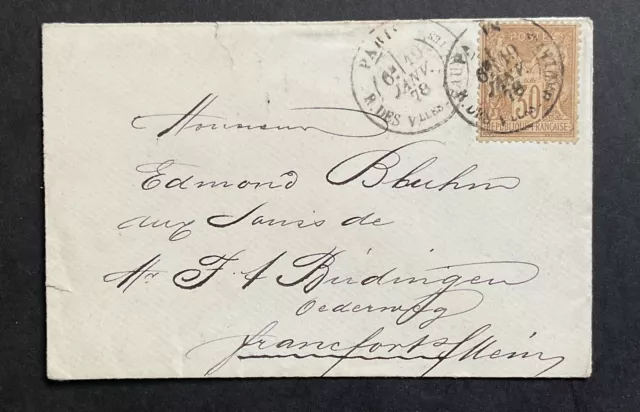 PARIS
6E 10
JANV.
78
R. DES VLLES
POSTES
30
REPUBLIQUE FRANCAISE
Monsieur
Edmond Bluhm
aux soins de
Mr F. A Büdingen
Oederweg
Francfort s/Mein